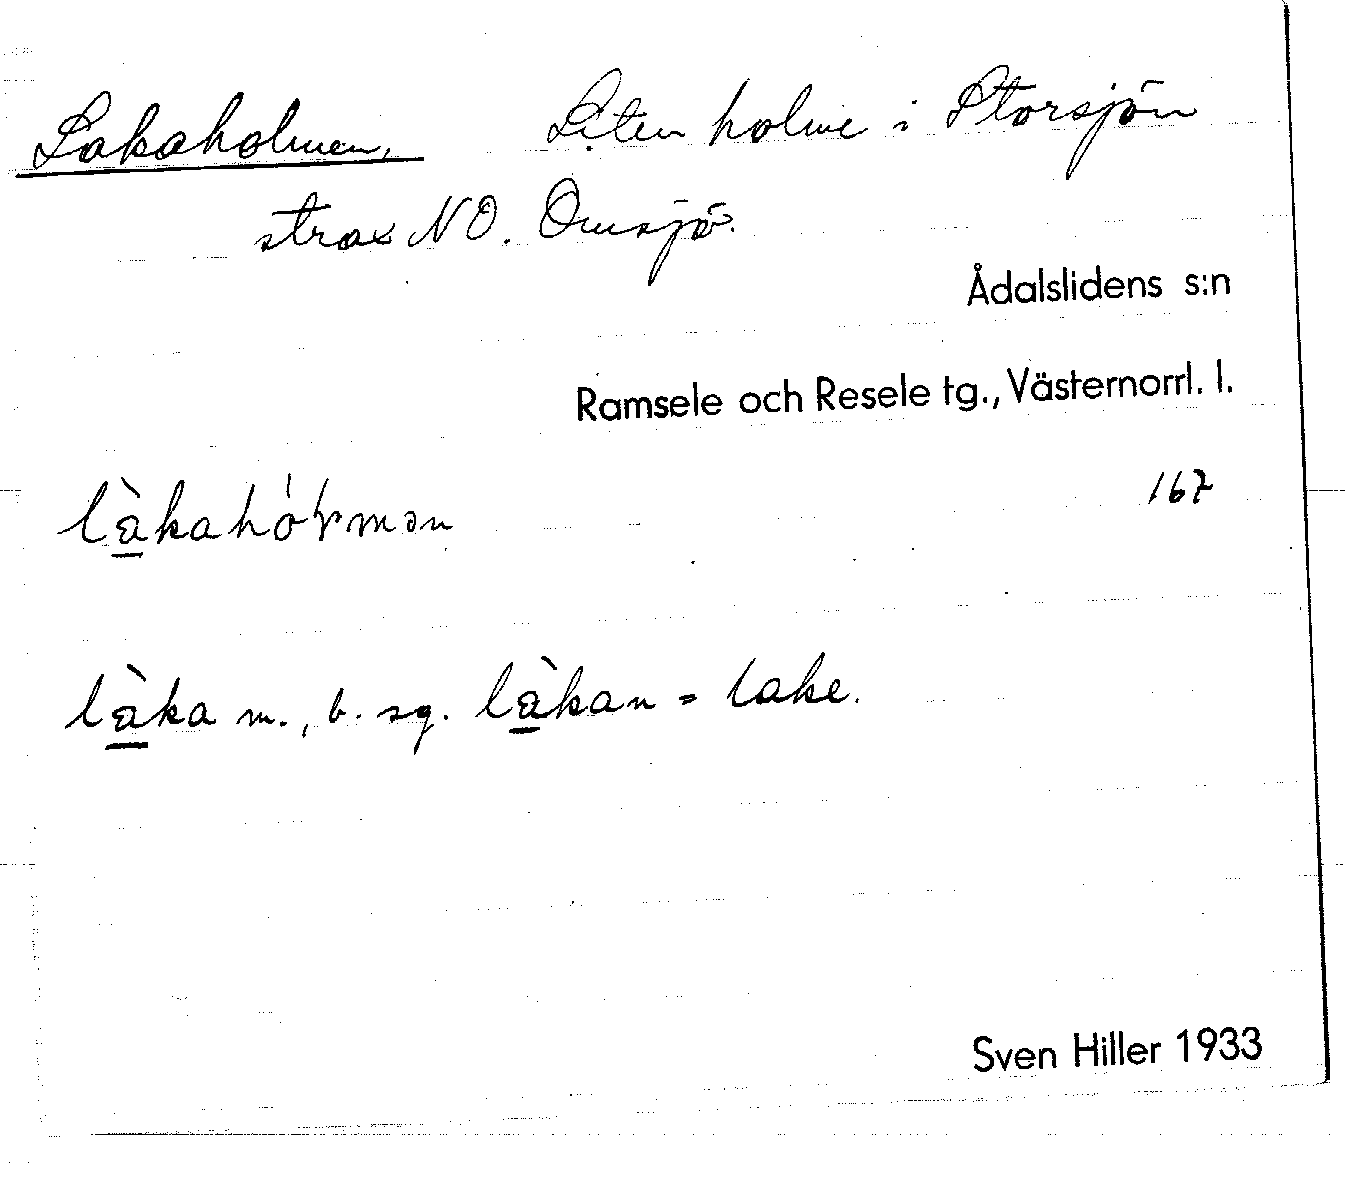 Lakaholmen, Liten holme i Storsjön
strax NO. Omsjö.
Ådalslidens s:n
Ramsele och Resele tg., Västernorrl. l.
167
là̱kahóɽmən
là̱ka m., b. sg. là̱kan = lake.
Sven Hiller 1933